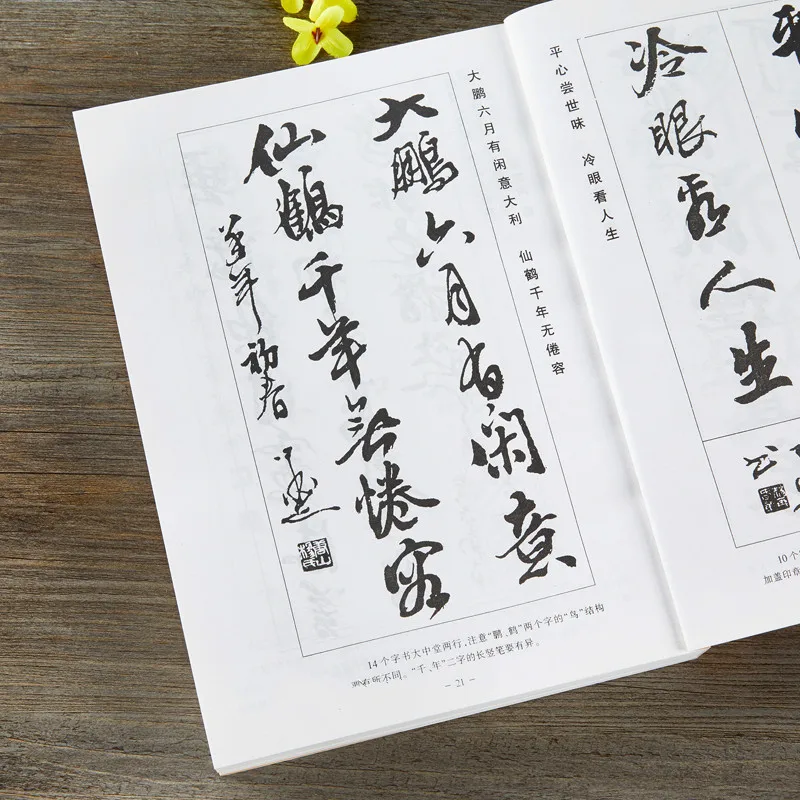 大鹏六月有闲意大利 仙鹤千年无倦容
大鵬六月有闲意
仙鶴千年无倦容
年初春
14个字书大中堂两行，注意“鹏、鹤”两个字的“鸟”结构
要有所不同。“千、年”二字的长竖笔要有异。
– 21 –
平心尝世味 冷眼看人生
冷眼看人生
10个
加盖印章